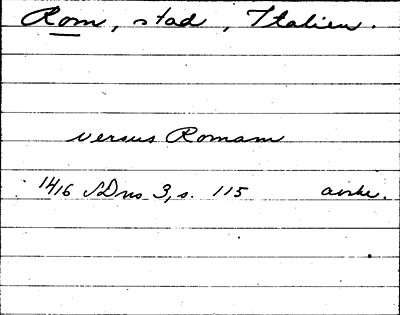 Rom, stad, Italien.
versus Romam
1416 SDns 3, s. 115 avskr.